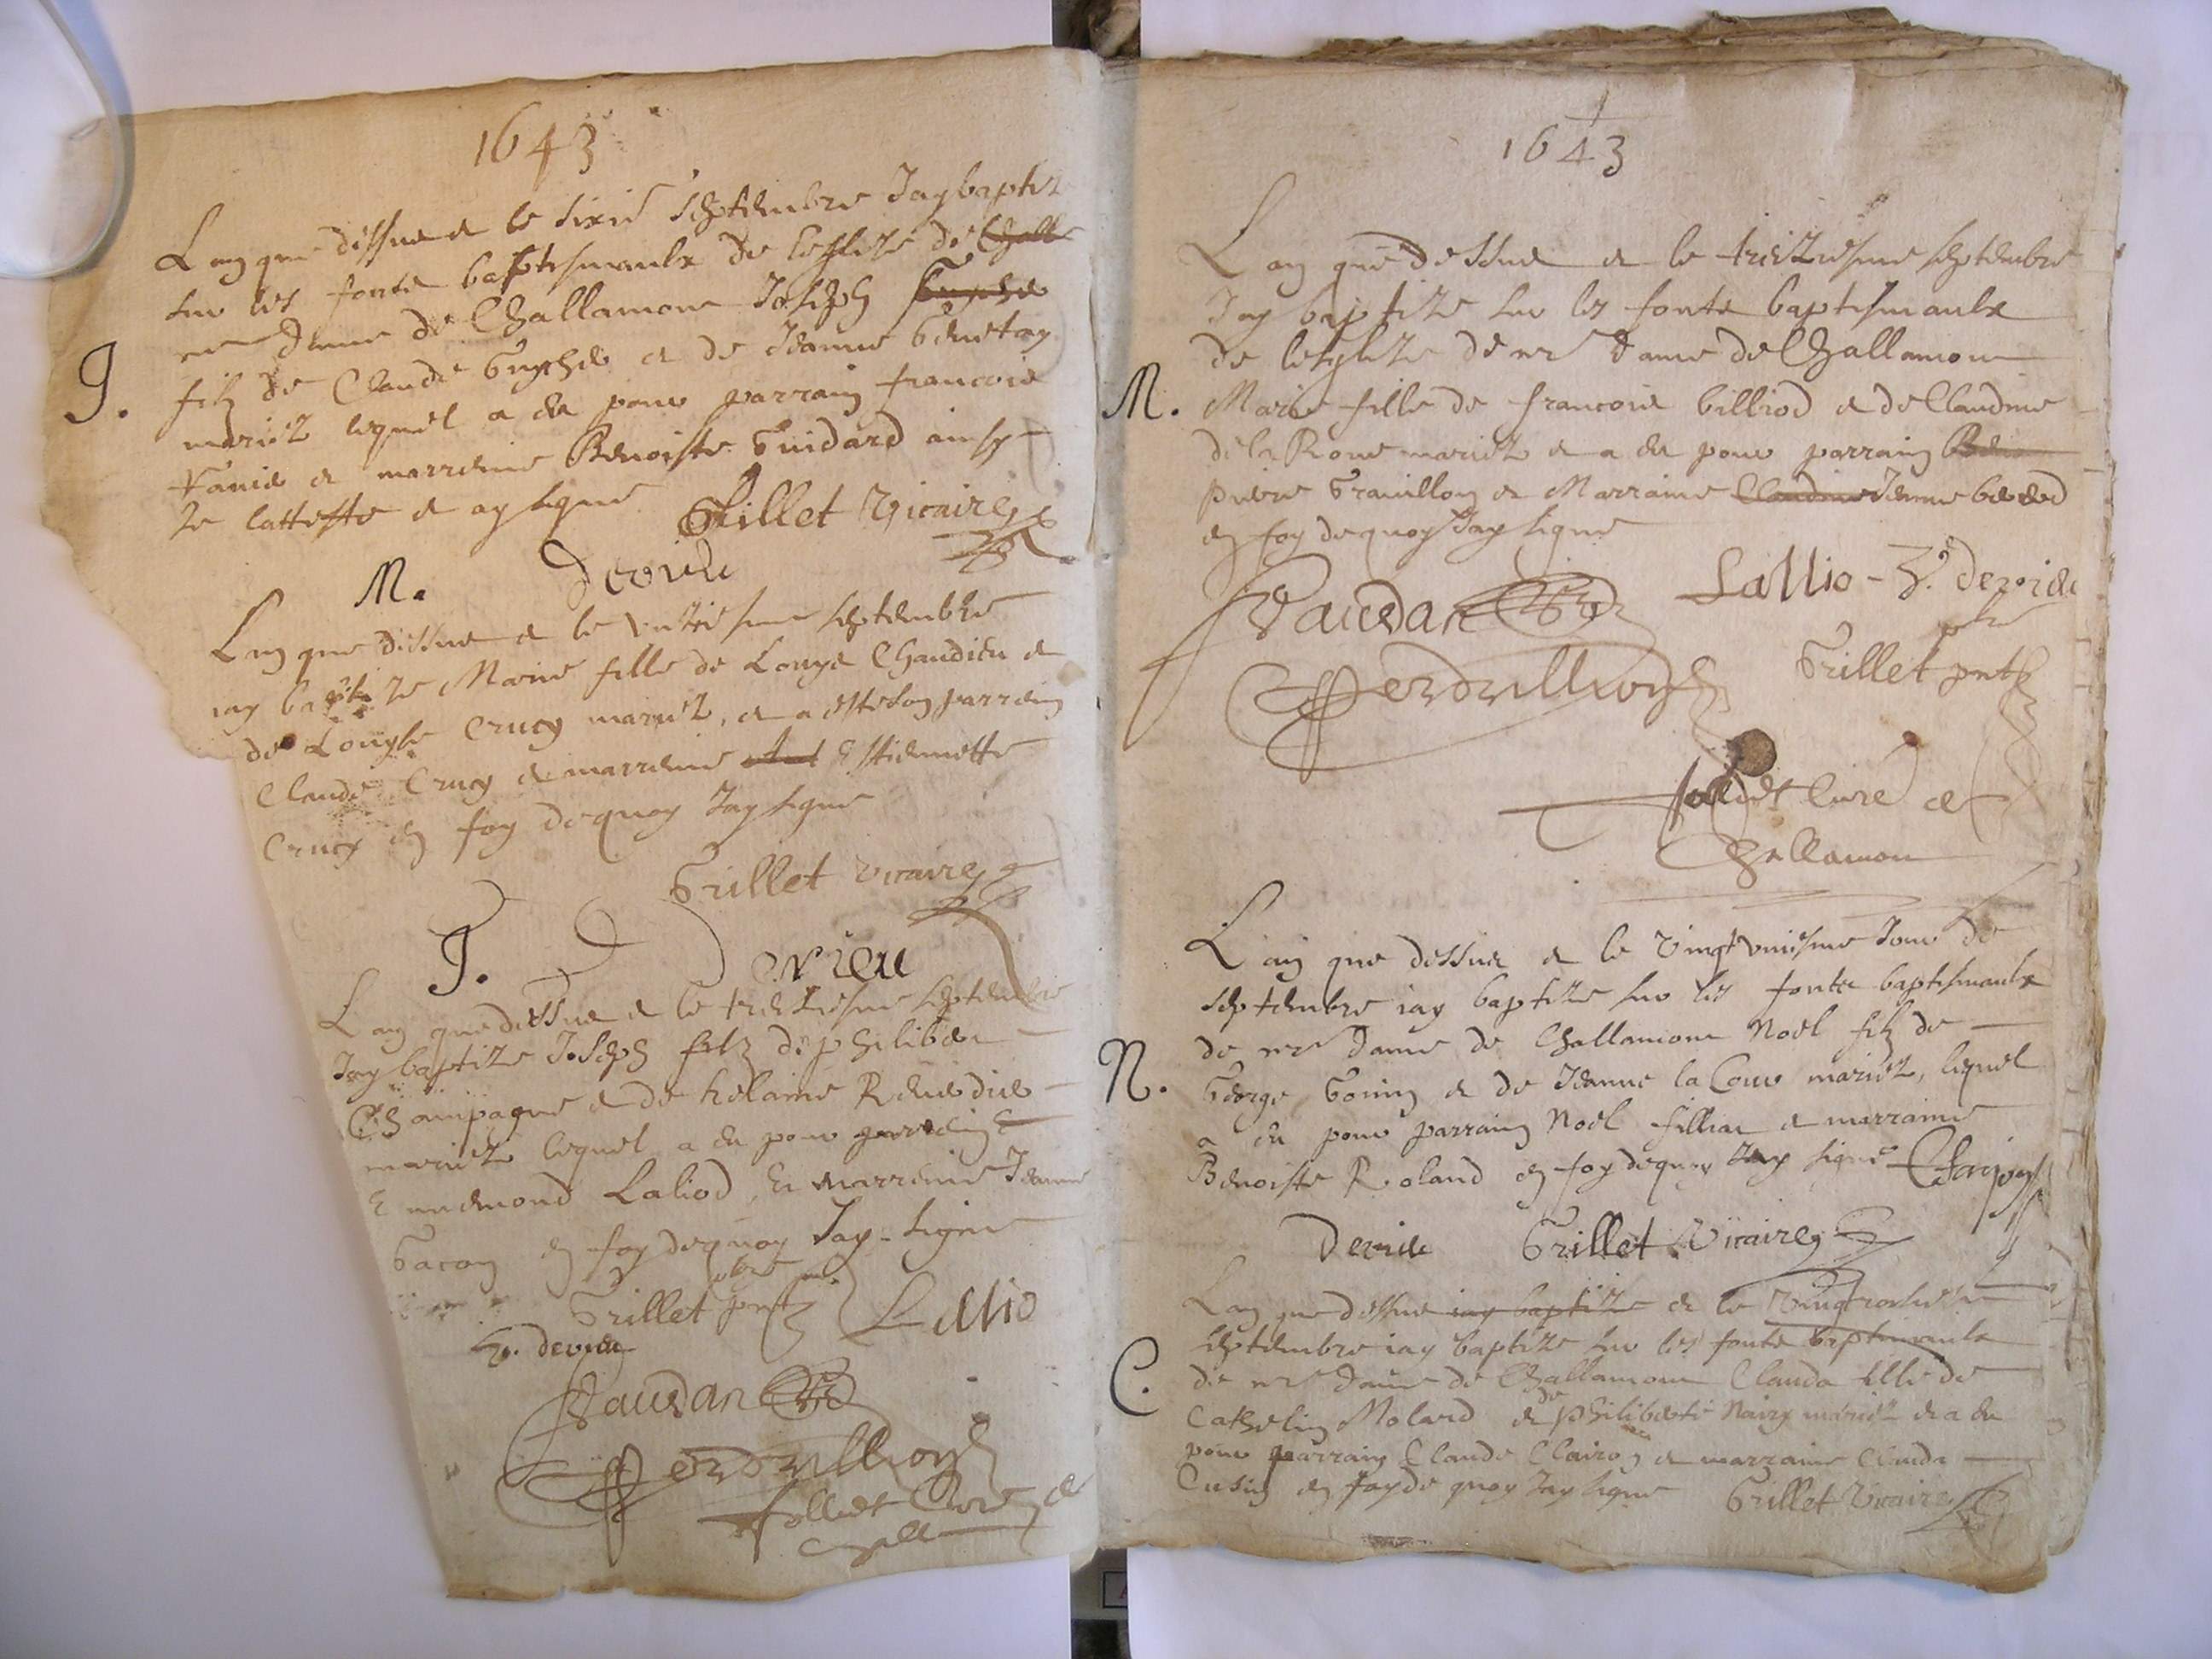 1643
Lan que dessus et le sixie septembre Jay baptiz
sur les fonts baptismaulx de leglize de Chall
nre dame de Challamont Joseph
J. filz de Claude et de Jeanne
mariez lequel a eu pour parrain francois
et marreine Benoiste Guidard ainsy
Je latteste et ay signe Grillet Vicaire
M. Devieu
Lan que dessus et le septembre
iay baptize Marie fille de Louys Chaudieu et
de Louyse Crucy mariez, et a este son parrein
Claude Crucy et marreine Estiennette
Crucy en foy dequoy Jay signe
Grillet vicaire
J. Devieu
Lan que dessus et le treiziesme septembre
Jay baptize Joseph filz de philibert
Champagne et de helaine
mariez lequel a eu pour parrein E
Ennemond Laliod, et marreine Jeanne
Gacon en foy dequoy Jay signe
Grillet pbre Lallio
devieu
Vaudan
folliet Cure de
Chall
1643
Lan que dessus et le treiziesme septembre
Jay baptize sur les fonts baptismaulx
de leglize de nre dame de Challamont
M. Marie fille de francois billiod et de Claudine
de la Roue mariez et a eu pour parrain
pierre Grauillon et Marraine Claudine Jeanne
en foy dequoy Jay signe
Vaudan Lallio - devieu
Grillet pbre
folliet Cure de
Challamont
Lan que dessus et le vingt uniesme Jour de
septembre iay baptize sur les fonts baptismaulx
de nre dame de Challamont Noel filz de
N. George Gonin et de Jeanne la Cour mariez, lequel
a eu pour parrain Noel filliat et marraine
Benoiste Roland en foy dequoy Jay signe
Devieu Grillet Vicaire
Lan que dessus iay baptize et le
septembre iay baptize sur les fonts baptismaulx
de nre dame de Challamont Clauda fille de
C. Cathelin Molard et de philiberte Nairy mariez et a eu
pour parrain Claude Clairon et marraine Clauda
Cusin en foy de quoy Jay signe Grillet Vicaire